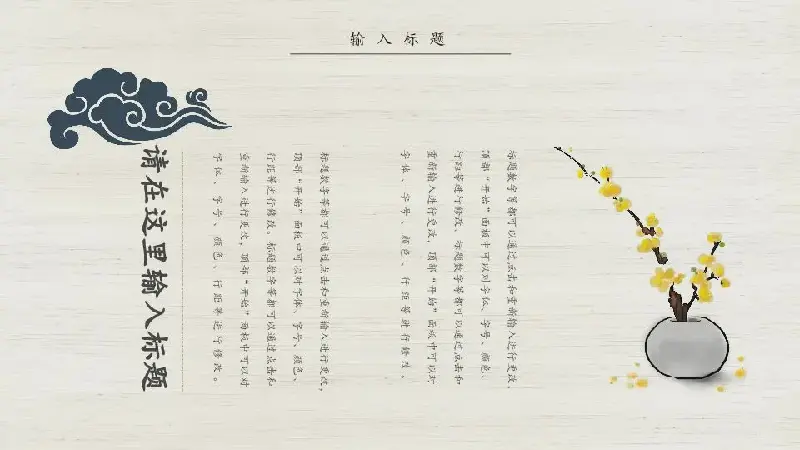 输入标题
标题数字等都可以通过点击和重新输入进行更改，
顶部“开始”面板中可以对字体、字号、颜色、
行距等进行修改。标题数字等都可以通过点击和
重新输入进行更改，顶部“开始”面板中可以对
字体、字号、颜色、行距等进行修改。
标题数字等都可以通过点击和重新输入进行更改，
顶部“开始”面板中可以对字体、字号、颜色、
行距等进行修改。标题数字等都可以通过点击和
重新输入进行更改，顶部“开始”面板中可以对
字体、字号、颜色、行距等进行修改。
请在这里输入标题